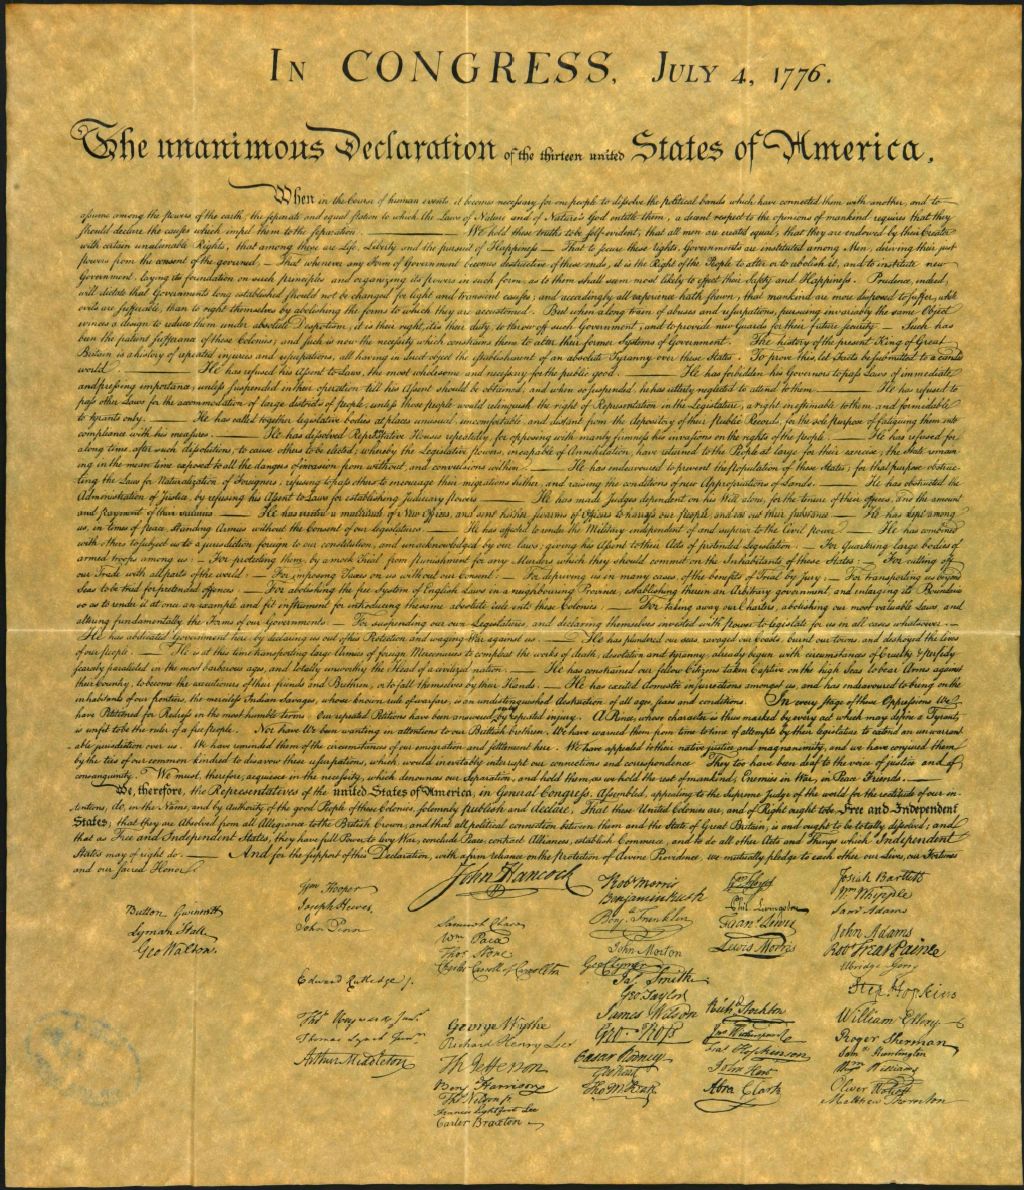 IN CONGRESS, JULY 4, 1776.
The unanimous Declaration of the thirteen united States of America,
When in the Course of human events, it becomes necessary for one people to dissolve the political bands which have connected them with another, and to
assume among the powers of the earth, the separate and equal station to which the Laws of Nature and of Nature's God entitle them, a decent respect to the opinions of mankind requires that they
should declare the causes which impel them to the separation. — We hold these truths to be self-evident, that all men are created equal, that they are endowed by their Creator
with certain unalienable Rights, that among these are Life, Liberty and the pursuit of Happiness — That to secure these rights, Governments are instituted among Men, deriving their just
powers from the consent of the governed, — That whenever any Form of Government becomes destructive of these ends, it is the Right of the People to alter or to abolish it, and to institute new
Government, laying its foundation on such principles and organizing its powers in such form, as to them shall seem most likely to effect their Safety and Happiness. Prudence, indeed,
will dictate that Governments long established should not be changed for light and transient causes; and accordingly all experience hath shewn, that mankind are more disposed to suffer, while
evils are sufferable, than to right themselves by abolishing the forms to which they are accustomed. But when a long train of abuses and usurpations, pursuing invariably the same Object
evinces a design to reduce them under absolute Despotism, it is their right, it is their duty, to throw off such Government, and to provide new Guards for their future security — Such has
been the patient sufferance of these Colonies; and such is now the necessity which constrains them to alter their former Systems of Government. The history of the present King of Great
Britain is a history of repeated injuries and usurpations, all having in direct object the establishment of an absolute Tyranny over these States. To prove this, let Facts be submitted to a candid
world. — He has refused his Assent to Laws, the most wholesome and necessary for the public good. — He has forbidden his Governors to pass Laws of immediate
and pressing importance, unless suspended in their operation till his Assent should be obtained; and when so suspended, he has utterly neglected to attend to them. — He has refused to
pass other Laws for the accommodation of large districts of people, unless those people would relinquish the right of Representation in the Legislature, a right inestimable to them and formidable
to tyrants only. — He has called together legislative bodies at places unusual, uncomfortable, and distant from the depository of their public Records, for the sole purpose of fatiguing them into
compliance with his measures. — He has dissolved Representative Houses repeatedly, for opposing with manly firmness his invasions on the rights of the people. — He has refused for
a long time, after such dissolutions, to cause others to be elected; whereby the Legislative powers, incapable of Annihilation, have returned to the People at large for their exercise; the State remain
ing in the mean time exposed to all the dangers of invasion from without, and convulsions within. — He has endeavoured to prevent the population of these States; for that purpose obstruc-
ting the Laws for Naturalization of Foreigners; refusing to pass others to encourage their migrations hither, and raising the conditions of new Appropriations of Lands. — He has obstructed the
Administration of Justice, by refusing his Assent to Laws for establishing Judiciary powers — He has made Judges dependent on his Will alone, for the tenure of their offices, and the amount
and payment of their salaries — He has erected a multitude of New Offices, and sent hither swarms of Officers to harrass our people, and eat out their substance — He has kept among
us, in times of peace, Standing Armies without the Consent of our legislatures. — He has affected to render the Military independent of and superior to the Civil power. — He has combined
with others to subject us to a jurisdiction foreign to our constitution, and unacknowledged by our laws; giving his Assent to their Acts of pretended Legislation: — For Quartering large bodies of
armed troops among us: — For protecting them, by a mock Trial, from punishment for any Murders which they should commit on the Inhabitants of these States: — For cutting off
our Trade with all parts of the world: — For imposing Taxes on us without our Consent: — For depriving us in many cases, of the benefits of Trial by Jury: — For transporting us beyond
Seas to be tried for pretended offences — For abolishing the free System of English Laws in a neighbouring Province, establishing therein an Arbitrary government, and enlarging its Boundaries
so as to render it at once an example and fit instrument for introducing the same absolute rule into these Colonies: — For taking away our Charters, abolishing our most valuable Laws, and
altering fundamentally the Forms of our Governments: — For suspending our own Legislatures, and declaring themselves invested with power to legislate for us in all cases whatsoever. —
He has abdicated Government here, by declaring us out of his Protection and waging War against us. — He has plundered our seas, ravaged our Coasts, burnt our towns, and destroyed the lives
of our people. — He is at this time transporting large Armies of foreign Mercenaries to compleat the works of death, desolation and tyranny, already begun with circumstances of Cruelty & perfidy
scarcely paralleled in the most barbarous ages, and totally unworthy the Head of a civilized nation. — He has constrained our fellow Citizens taken Captive on the high Seas to bear Arms against
their Country, to become the executioners of their friends and Brethren, or to fall themselves by their Hands. — He has excited domestic insurrections amongst us, and has endeavoured to bring on the
inhabitants of our frontiers, the merciless Indian Savages, whose known rule of warfare, is an undistinguished destruction of all ages, sexes and conditions. In every stage of these Oppressions We
have Petitioned for Redress in the most humble terms: Our repeated Petitions have been answered only by repeated injury. A Prince, whose character is thus marked by every act which may define a Tyrant,
is unfit to be the ruler of a free people. Nor have We been wanting in attentions to our Brittish brethren. We have warned them from time to time of attempts by their legislature to extend an unwarrant-
able jurisdiction over us. We have reminded them of the circumstances of our emigration and settlement here. We have appealed to their native justice and magnanimity, and we have conjured them
by the ties of our common kindred to disavow these usurpations, which, would inevitably interrupt our connections and correspondence. They too have been deaf to the voice of justice and of
consanguinity. We must, therefore, acquiesce in the necessity, which denounces our Separation, and hold them, as we hold the rest of mankind, Enemies in War, in Peace Friends. —
We, therefore, the Representatives of the united States of America, in General Congress, Assembled, appealing to the Supreme Judge of the world for the rectitude of our in-
tentions, do, in the Name, and by Authority of the good People of these Colonies, solemnly publish and declare, That these United Colonies are, and of Right ought to be Free and Independent
States; that they are Absolved from all Allegiance to the British Crown, and that all political connection between them and the State of Great Britain, is and ought to be totally dissolved; and
that as Free and Independent States, they have full Power to levy War, conclude Peace, contract Alliances, establish Commerce, and to do all other Acts and Things which Independent
States may of right do. — And for the support of this Declaration, with a firm reliance on the protection of divine Providence, we mutually pledge to each other our Lives, our Fortunes
and our sacred Honor.
Button Gwinnett
Lyman Hall
Geo Walton.
Wm Hooper
Joseph Hewes,
John Penn
Edward Rutledge /.
Thos Heyward Junr.
Thomas Lynch Junr.
Arthur Middleton
John Hancock
Samuel Chase
Wm Paca
Thos Stone
Charles Carroll of Carrollton
George Wythe
Richard Henry Lee
Th Jefferson
Benj Harrison
Thos Nelson jr.
Francis Lightfoot Lee
Carter Braxton
Robt Morris
Benjamin Rush
Benj. Franklin
John Morton
Geo Clymer
Jas. Smith
Geo. Taylor
James Wilson
Geo. Ross
Caesar Rodney
Geo Read
Tho M:Kean
Wm Floyd
Phil. Livingston
Frans. Lewis
Lewis Morris
Richd. Stockton
Jno Witherspoon
Fras. Hopkinson
John Hart
Abra Clark
Josiah Bartlett
Wm Whipple
Saml Adams
John Adams
Robt Treat Paine
Elbridge Gerry
Step. Hopkins
William Ellery
Roger Sherman
Saml Huntington
Wm Williams
Oliver Wolcott
Matthew Thornton